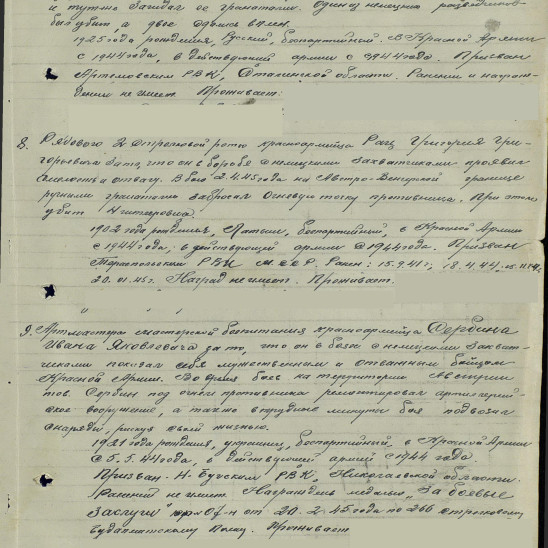 и путно забидал ее гранатами. Один немецкий разведчик
был убит а двое сдались в плен.
1925 года рождения, Русский, беспартийный. В Красной Армии
с 1944 года, в действующей армии с 1944 года. Призван
Артемовским РВК, Сталинской области. Ранений и награж-
дении не имеет. Проживает:
8. Рядового 2 стрелковой роты красноармейца Рац Григория Гри-
горьевича за то, что он в борьбе с немецкими захватчиками проявил
смелость и отвагу. В бою 2.4.45 года на Австро-Венгерской границе
ручными гранатами забросал огневую точку противника. При этом
убит 4 гитлеровца.
1902 года рождения, беспартийный, в Красной Армии
с 1944 года, в действующей армии с 1944 года. Призван
Тираспольским РВК М.ССР. Ранен: 15.9.41 г; 18.4.44;
20.01.45 г. Наград не имеет. Проживает:
9. Артмастера мастерской боепитания красноармейца Сербина
Ивана Яковлевича за то, что он в боях с немецкими захват-
чиками показал себя мужественным и отважным бойцом
Красной Армии. Во время боев на территории Австрии
тов. Сербин под огнем противника ремонтировал артиллерий-
ское вооружение, а также в трудные минуты боя подвозил
снаряды, рискуя своей жизнью.
1921 года рождения, украинец, беспартийный, в Красной Армии
с 5.5.44 года, в действующей армии с 1944 года.
Призван Н-Бугским РВК, Николаевской области.
Ранений не имеет. Награжден медалью "За боевые
заслуги" пр. 07-н от 20.2.45 года по 266 стрелковому
Будапештскому Полку. Проживает